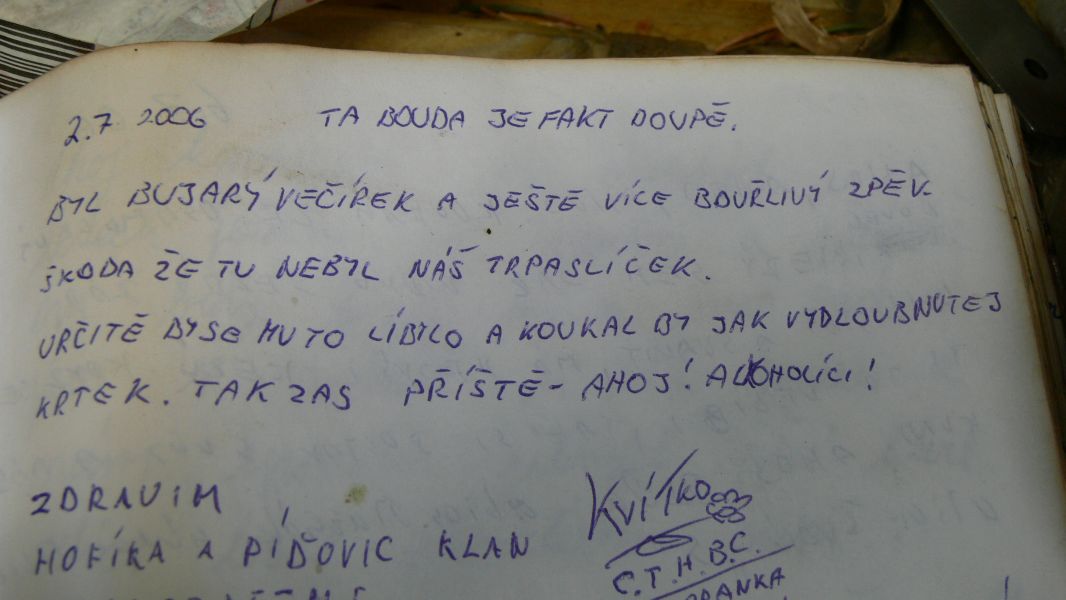 2.7 2006 TA BOUDA JE FAKT DOUPĚ.
BYL BUJARÝ VEČÍREK A JEŠTĚ VÍCE BOUŘLIVÝ ZPĚV.
ŠKODA ŽE TU NEBYL NÁŠ TRPASLÍČEK.
URČITĚ BY SE MU TO LÍBILO A KOUKAL BY JAK VYDLOUBNUTEJ
KRTEK. TAK ZAS PŘÍŠTĚ - AHOJ! ALKOHOLÍCI!
ZDRAVIM
HOFÍKA A PÍĎOVIC KLAN
KVÍTKO
C.T.H.B.C.